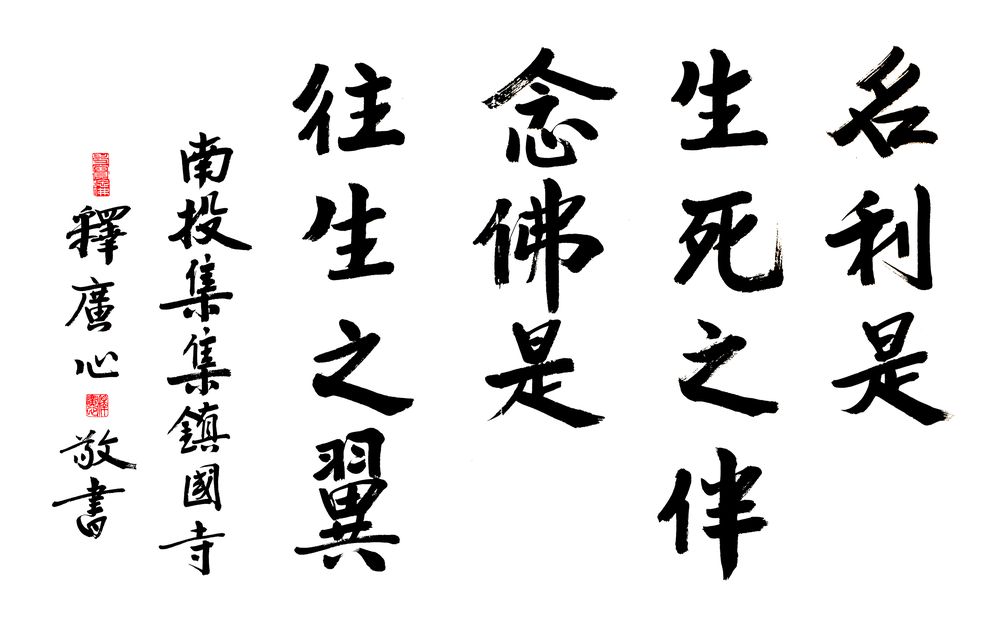 名利是
生死之伴
念佛是
往生之翼
南投集集鎮國寺
釋廣心敬書